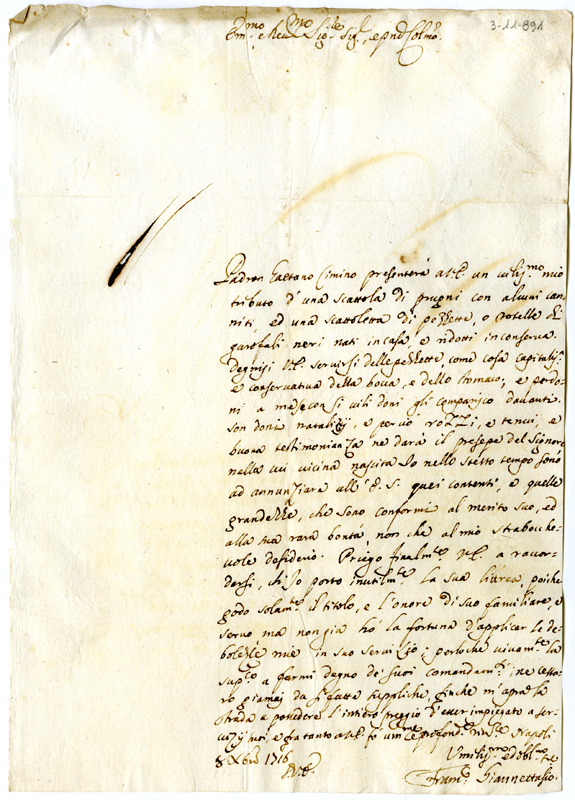 3-11-891
Em.mo e Rev.mo Sig.re Sig.r, e pnd Colmo.
Padron Gaetano Cimino presenterà a V.E. un umiliss.mo mio
tributo d'una scattola di prugni con alcuni can-
niti, ed una scattoletta di pezzette, o rotelle di
garofali neri nati in casa, e ridotti in conserva.
Degnisi V.E. servirsi delle pezzette, come cosa
e conservativa della bocca, e dello stomaco; e perdo-
ni a me se con sì vili doni gli comparisco davanti.
son doni natalizij, e perciò rozzi, e tenui, e
buona testimonianza ne darà il presepe del Signore
nella cui vicina nascita Io nello stesso tempo sono
ad annunziare all'E.S. quei contenti, e quelle
grandezze, che sono conformi al merito suo, ed
alla sua rara bontà, non che al mio strabocche-
vole desiderio. Priego finalm.te V.E. a racor-
darsi, ch'Io porto inutilm.te la sua livrea, poiche
godo solam.te il titolo, e l'onore di suo familiare, e
servo ma non già hò la fortuna d'applicar le de-
bolezze mie in suo servizio; perloche vivam.te la
sup.co a farmi degno de' suoi comandam.ti; ne cesse-
rò giamaj da sì fatte suppliche, finche m'apra la
strada a possedere l'intiero preggio d'esser impiegato a ser-
vizij suoi, e gratanto a V.E. fò um.me e profond.me riv.ze Napoli
8 Xbre 1716
D.V.E.
Umiliss.mo ed obl.mo
Fran.co Giannettasio.